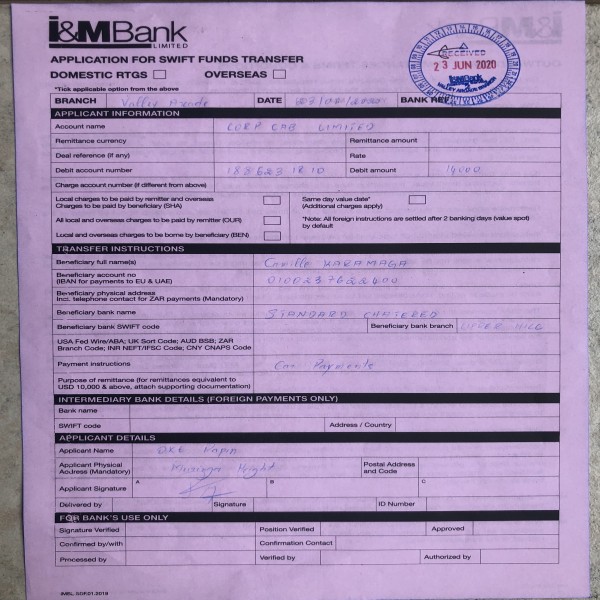 I&M Bank
LIMITED
APPLICATION FOR SWIFT FUNDS TRANSFER
DOMESTIC RTGS OVERSEAS
*Tick applicable option from the above
RECEIVED
23 JUN 2020
I&M Bank
VALLEY ARCADE BRANCH
BRANCH Valley Arcade DATE BANK REF
APPLICANT INFORMATION
Account name CORP CAB LIMITED
Remittance currency Remittance amount
Deal reference (if any) Rate
Debit account number Debit amount 14000
Charge account number (if different from above)
Local charges to be paid by remitter and overseas
Charges to be paid by beneficiary (SHA)
Same day value date*
(Additional charges apply)
All local and overseas charges to be paid by remitter (OUR)
*Note: All foreign instructions are settled after 2 banking days (value spot)
by default
Local and overseas charges to be borne by beneficiary (BEN)
TRANSFER INSTRUCTIONS
Beneficiary full name(s) Camille KARAMAGA
Beneficiary account no
(IBAN for payments to EU & UAE) 0100237622400
Beneficiary physical address
Incl. telephone contact for ZAR payments (Mandatory)
Beneficiary bank name STANDARD CHARTERED
Beneficiary bank SWIFT code Beneficiary bank branch UPPER HILL
USA Fed Wire/ABA; UK Sort Code; AUD BSB; ZAR
Branch Code; INR NEFT/IFSC Code; CNY CNAPS Code
Payment instructions Car Payments
Purpose of remittance (for remittances equivalent to
USD 10,000 & above, attach supporting documentation)
INTERMEDIARY BANK DETAILS (FOREIGN PAYMENTS ONLY)
Bank name
SWIFT code Address / Country
APPLICANT DETAILS
Applicant Name
Applicant Physical
Address (Mandatory) Height
Postal Address
and Code
Applicant Signature A B C
Delivered by Signature ID Number
FOR BANK'S USE ONLY
Signature Verified Position Verified Approved
Confirmed by/with Confirmation Contact
Processed by Verified by Authorized by
IMBL-SGF.01-2019